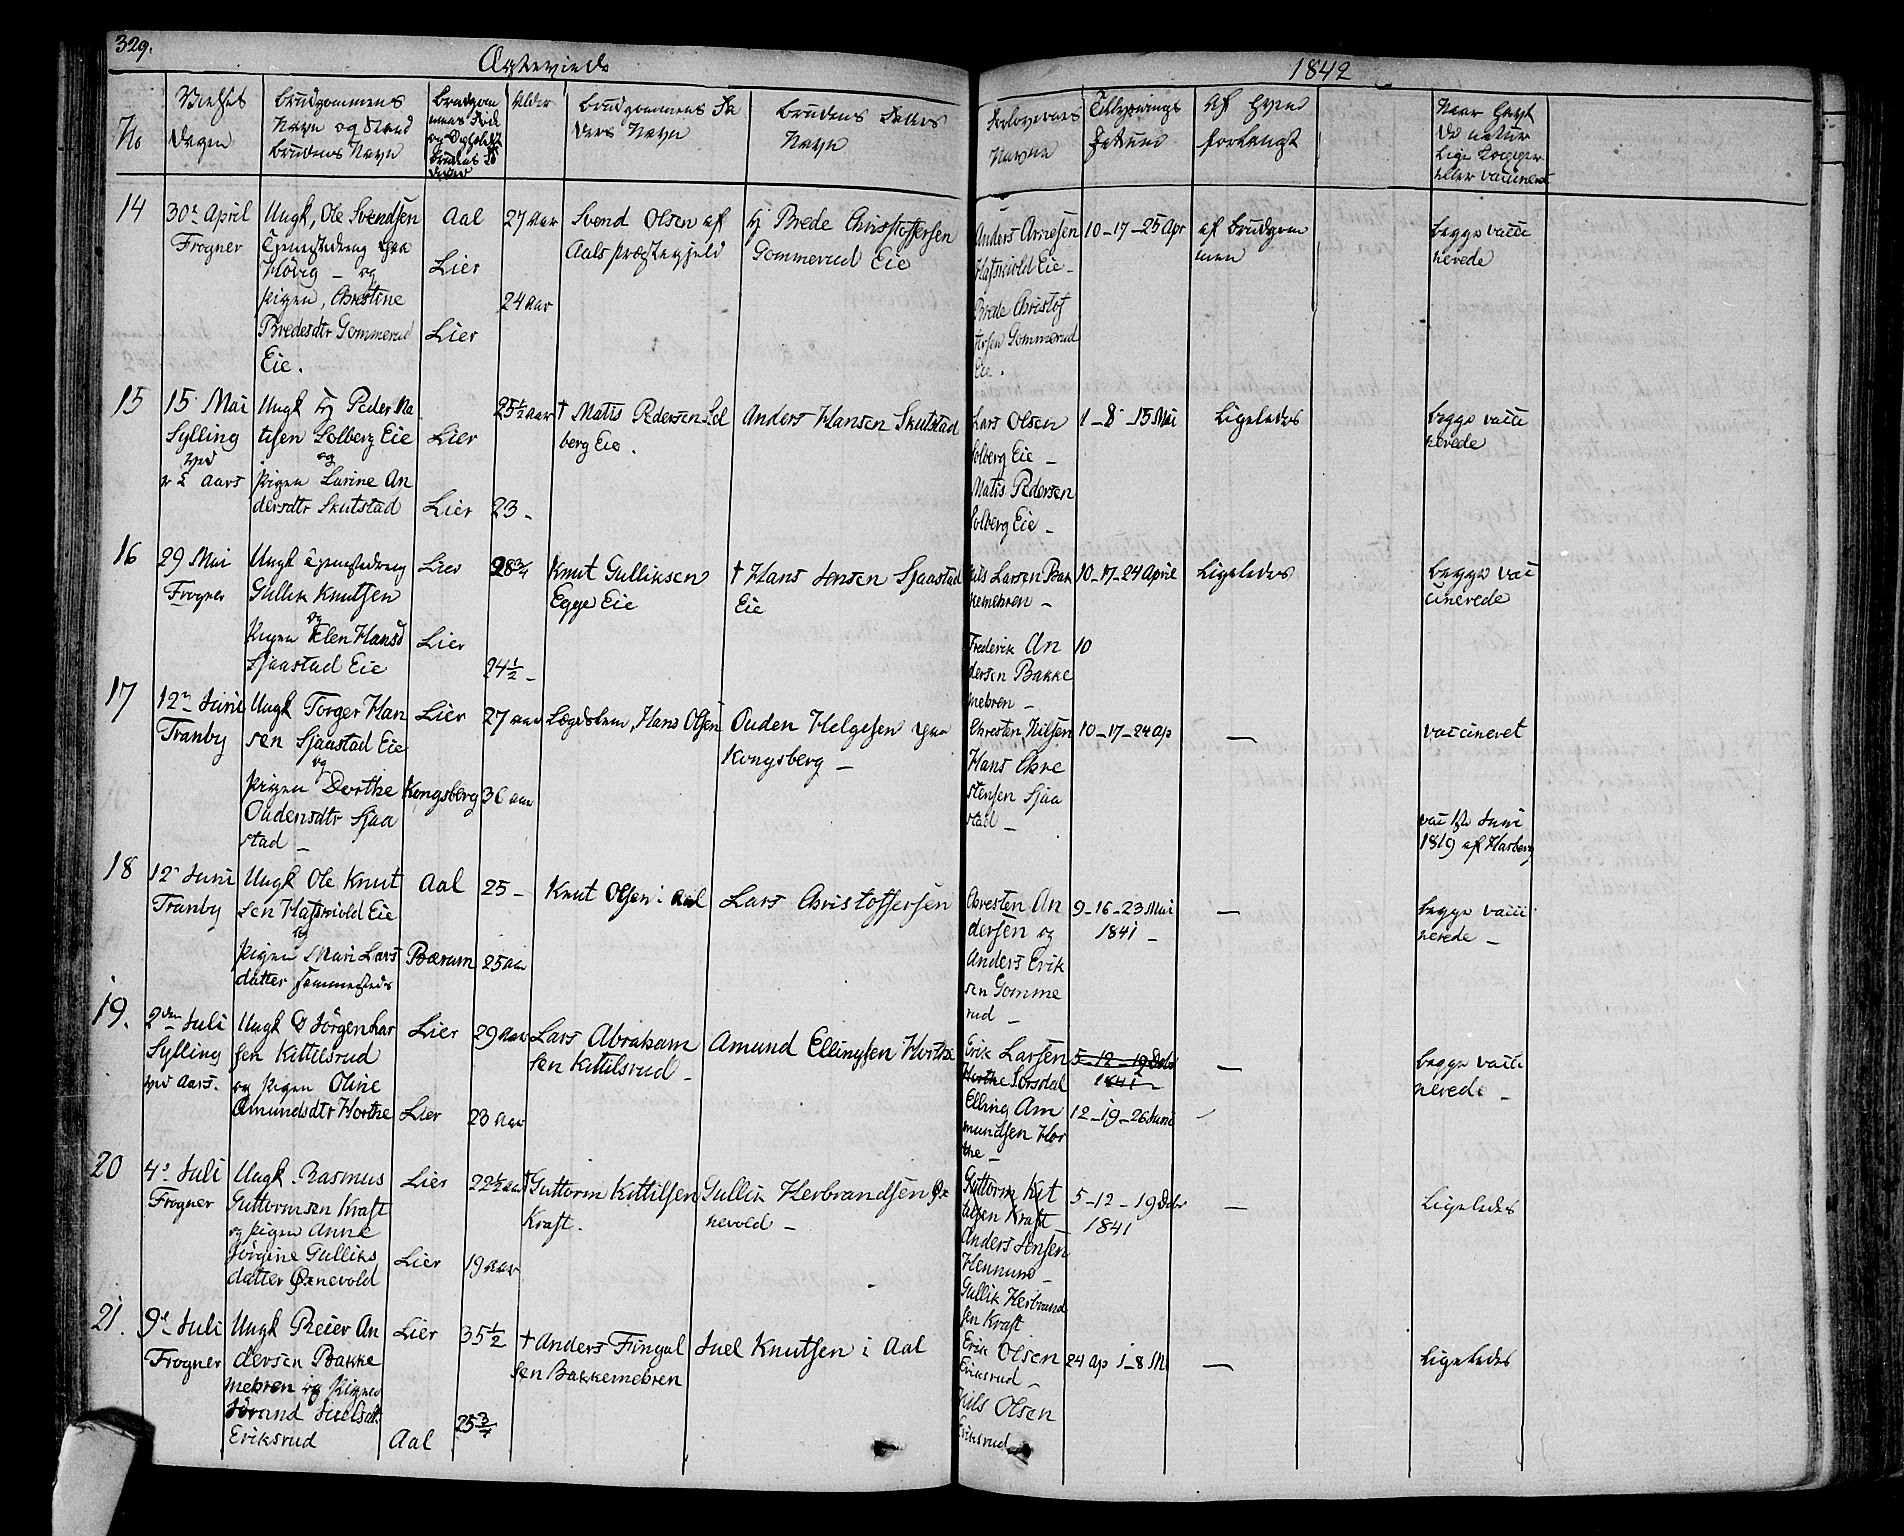 329.
Ægteviede
1842
No
Vielses
Dagen
Brudgommens
Navn og Stand
Brudens Navn
Alder
Brudgommens Fa
ders Navn
Brudens Faders
Navn
Forlovernes
Navne
Tillysnings
Datum
Af Hvem
forlangt
Naar havt
de natur
lige Kopper
eller vaccineret
14
30te April
Frogner
Ungk, Ole Svendsen
Tjenestedreng paa
Høvig - og
Pigen, Christine
Bredesdtr Gommerud
Eie.
Aal
Lier
Lier
27 Aar
24 Aar
Svend Olsen af
Aals Præstegjeld
Brede Christoffersen
Gommerud Eie
Anders Arnesen
Hafswold Eie -
Brede Christof
fersen Gommerud
Eie.
10 - 17 - 25 Apr
af Brudgom
men
begge vacci
nerede
15
15 Mai
Sylling
Aars
Ungk Peder Ma
tisen Solberg Eie
og
Pigen Larine An
dersdtr Skutstad
Lier
Lier
25½ Aar
23 -
† Matis Pedersen Sol
berg Eie.
Anders Hansen Skutstad
Lars Olsen
Solberg Eie -
Matis Pedersen
Solberg Eie -
1 - 8 - 15 Mai
Ligeledes
begge vacci
nerede
16
29 Mai
Frogner
Ungk Tjenestedreng
Gullik Knutsen
og
Pigen Elen Hansd
Sjaastad Eie
Lier
Lier
28¾
24½ -
Knut Gulliksen
Egge Eie
† Hans Jensen Sjaastad
Eie
Nils Larsen Bak
kemehren -
Frederik An
dersen Bakke
mehren -
10 - 17 - 24 April
10
Ligeledes
begge vac
cinerede
17
12te Juni
Tranby
Ungk Torger Han
sen Sjaastad Eie
og
Pigen Dorthe
Oudensdtr Sjaa
stad -
Lier
Kongsberg
27 Aar
36 Aar
Lægdslem, Hans Olsen
Ouden Helgesen paa
Kongsberg -
Chresten Nilsen
Hans Chre
stensen Sjaa
stad -
10 - 17 - 24 Ap
-
vaccineret
vac Juni
1819 af Harberg
18
12te Juni
Tranby
Ungk Ole Knut
sen Hafswold Eie
og
Pigen Mari Lars
datter sammesteds
Aal
Bærum
25 -
25 Aar
Knut Olsen i Aal
Lars Christoffersen
Chresten An
dersen og
Anders Erik
sen Gomme
rud -
9 - 16 - 23 Mai
1841 -
-
begge vacci
nerede -
19.
2den Juli
Sylling
ved Aars.
Ungk Jørgen Lar
sen Kittilsrud
og Pigen Oline
Amundsdtr Horthe
Lier
Lier
29 Aar
23 Aar
Lars Abraham
sen Kittilsrud -
Amund Ellingsen Horthe
Erik Larsen
Horthe Sørsdal
Elling Am
mundsen Hor
the -
5 - 12 - 19 Debr
1841 -
12 - 19 - 26 Juni
-
begge vacci
nerede -
20
4de Juli
Frogner
Ungk Rasmus
Guttormsen Kraft
og Pigen Anne
Jørgine Gulliks
datter Ørnevold
Lier
Lier
22½ Aar
19 Aar
† Guttorm Kittilsen
Kraft.
Gullik Herbrandsen Ør
nevold -
Guttorm Kit
tilsen Kraft -
Anders Jensen
Hennum -
Gullik Herbrand
sen Kraft
5 - 12 - 19 Debr
1841
-
Ligeledes
21.
9de Juli
Frogner
Ungk Reier An
dersen Bakke
mehren og Pigen
Jørand Juelsdt.
Eriksrud
Lier
Aal
35½
25¾
† Anders Fingal
sen Bakkemehren
Juel Knutsen i Aal
Erik Olsen
Ericsrud -
Nils Olsen
Eriksrud
24 Ap 1 - 8 M
-
Ligeledes